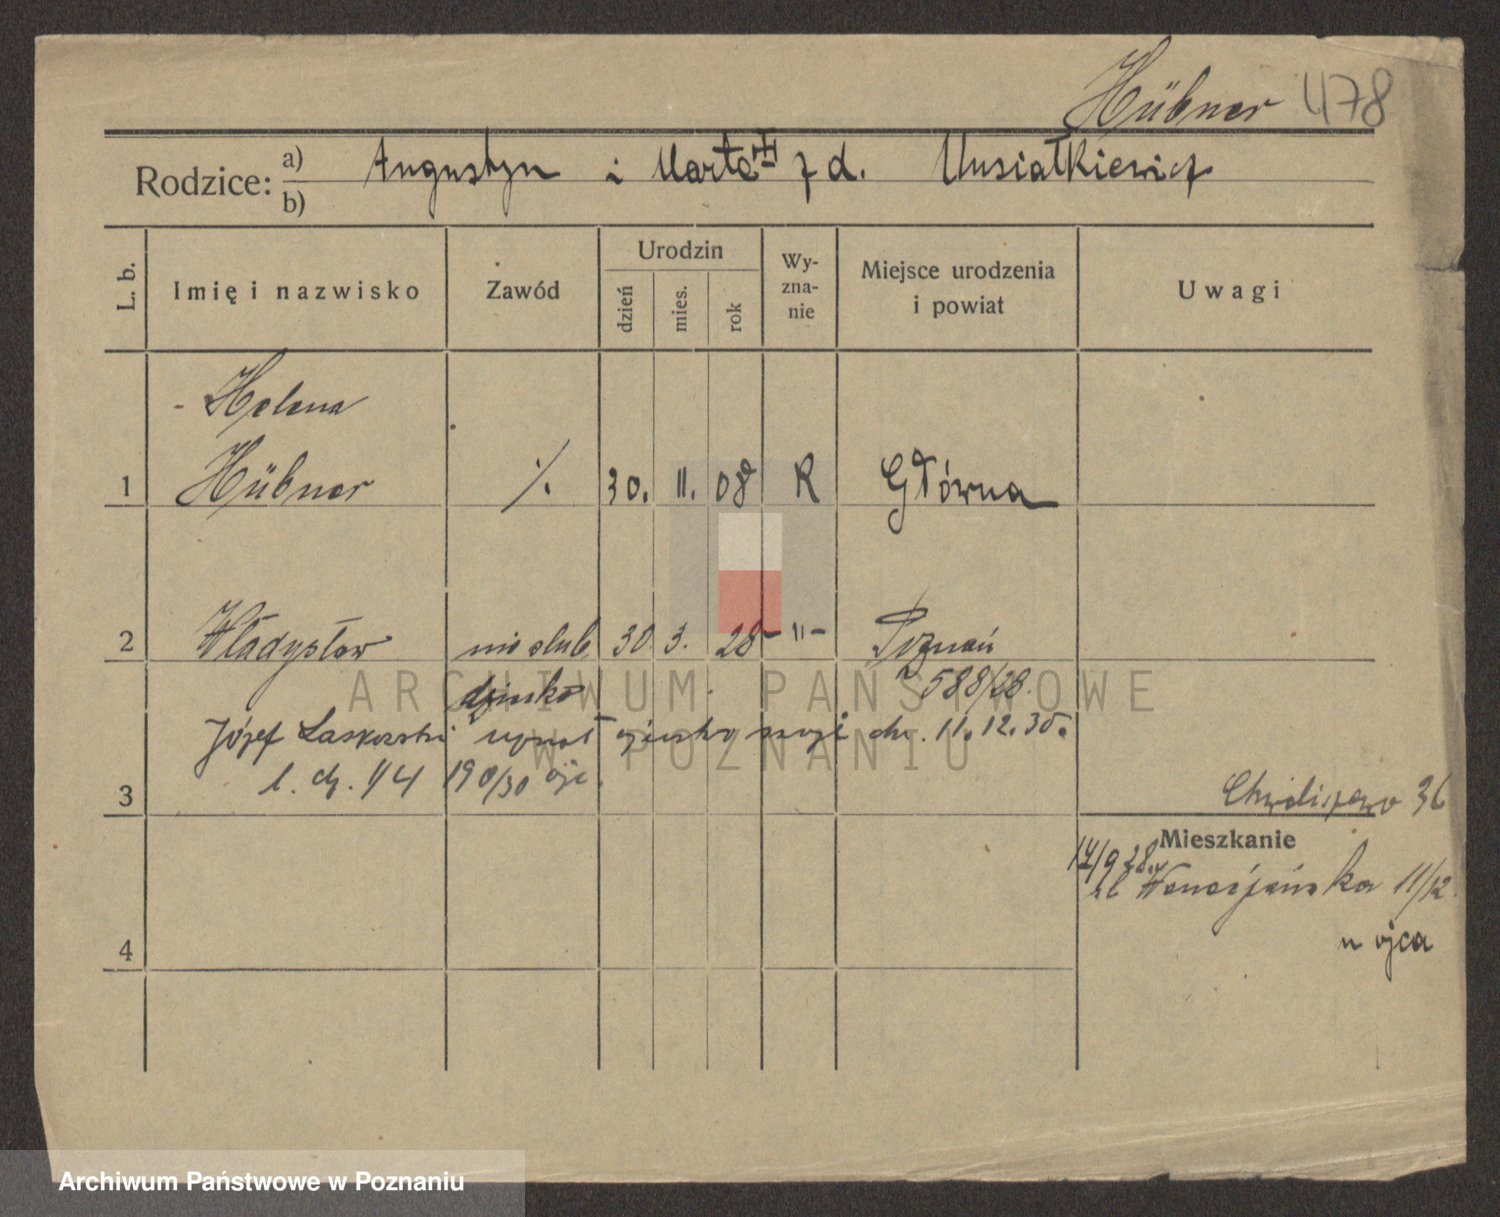 Hübner 478
Rodzice: a) b) Augustyn i Marta z d. Musiałkiewicz
L. b.
Imię i nazwisko
Zawód
Urodzin
dzień
mies.
rok
Wy-
zna-
nie
Miejsce urodzenia
i powiat
Uwagi
Helena
1 Hübner ./. 30. 11. 08 R Główna
2 Władysław nieślub 30 3. 28 -"- Poznań
dziecko 588/28.
Józef Laskowski uznał ojcostwo swoje dn. 11.12.30.
3 l. dz. 190/30
Chwaliszewo 36
Mieszkanie
14/9 28. Wenecjańska 11/12
u ojca
4
ARCHIWUM PAŃSTWOWE
W POZNANIU
Archiwum Państwowe w Poznaniu